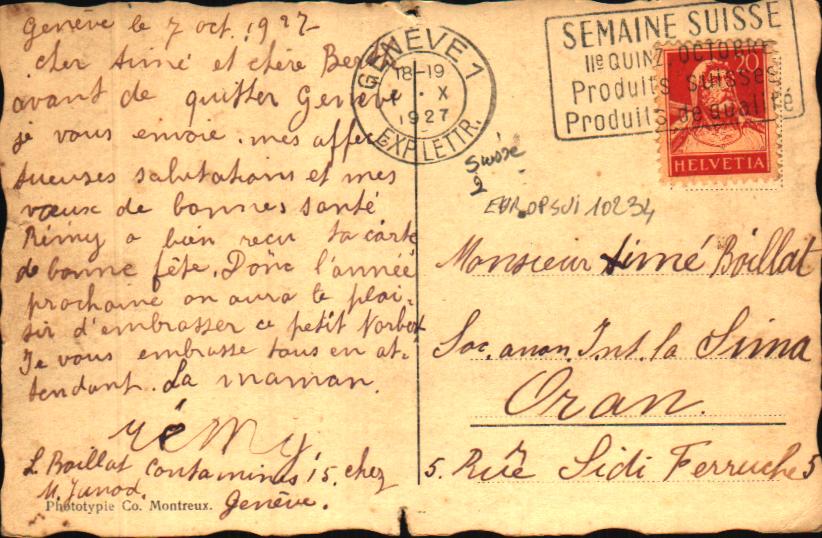 Genève le 7 oct. 1927
cher Aimé et chère Ber
avant de quitter Genève
je vous envoie mes affec
tueuses salutations et mes
vœux de bonnes santé
Rémy a bien reçu ta carte
de bonne fête. Donc l'année
prochaine on aura le plai-
sir d'embrasser ce petit Norbert
Je vous embrasse tous en at-
tendant. La maman.
rémy
L Boillat Contamines 15. chez
M. Junod.
Genève.
Phototypie Co. Montreux.
GENÈVE 1
18-19
X
1927
EXP. LETTR.
SEMAINE SUISSE
IIe QUINZ. OCTOBRE
Produits suisses
Produits de qualité
20
HELVETIA
Suisse
EUROPSUI 10234
Monsieur Aimé Boillat
Soc. anon. Int. la Sima
Oran.
5. Rue Sidi Ferruche 5